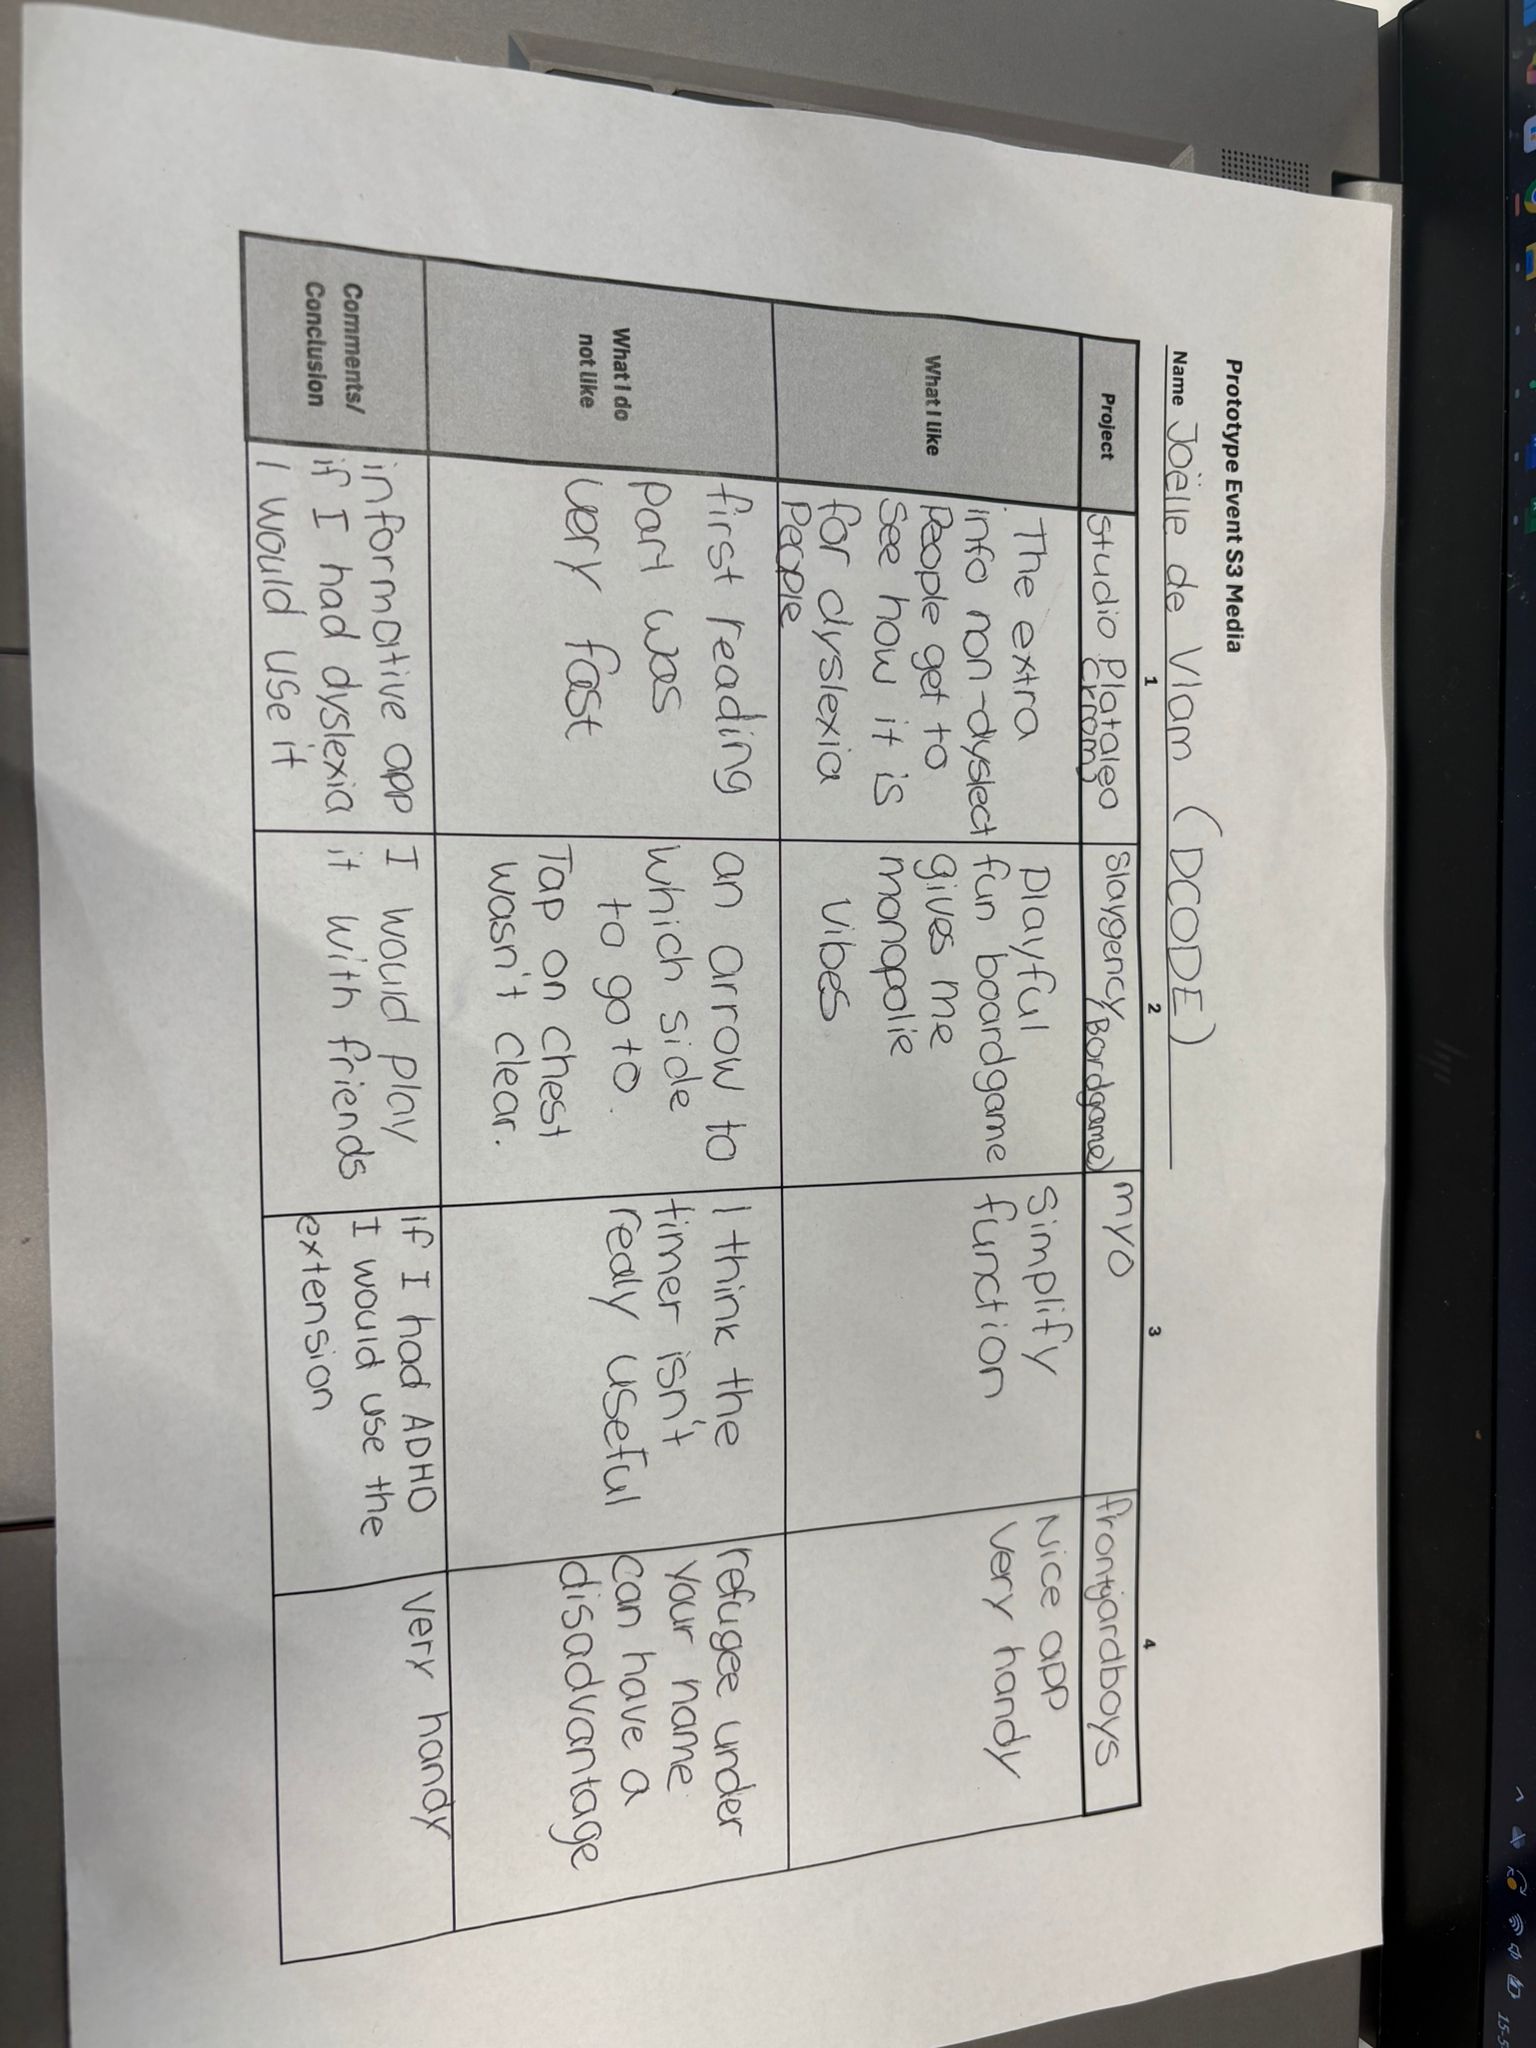 Prototype Event S3 Media
Name Joëlle de Vlam (DCODE)
1
2
3
4
Project
Studio Plataleo
Slaygency(Bordgame)
myo
frontyardboys
What I like
The extra
info non-dyslect
People get to
see how it is
for dyslexia
People
Playful
fun boardgame
gives me
monopolie
vibes
Simplify
function
Nice app
very handy
What I do
not like
first reading
part was
very fast
an arrow to
which side
to go to.
Tap on chest
wasn't clear.
I think the
timer isn't
realy useful
refugee under
your name
can have a
disadvantage
Comments/
Conclusion
informative app
if I had dyslexia
I would use it
I would play
it with friends
if I had ADHD
I would use the
extension
Very handy
hp